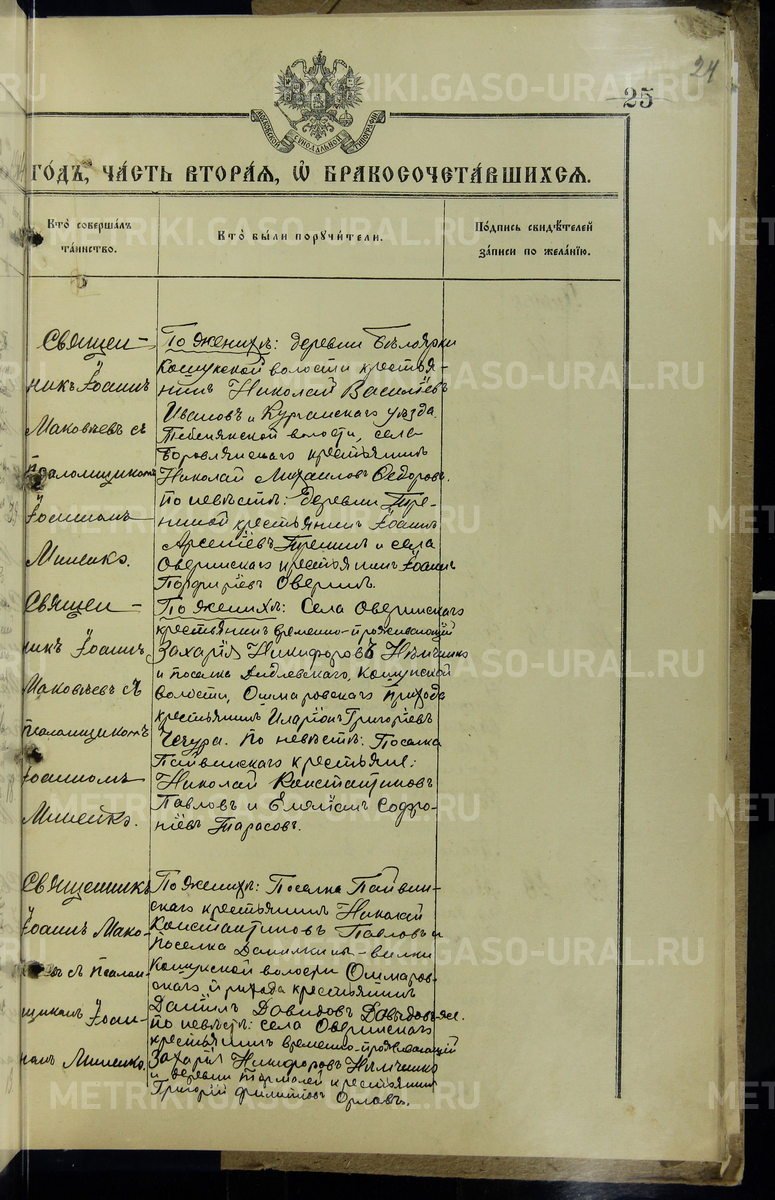 24
25
МОСКОВСКОЙ СѴНОДАЛЬНОЙ ТИПОГРАФІИ
ГОДЪ, ЧАСТЬ ВТОРАЯ, Ѡ БРАКОСОЧЕТАВШИХСЯ.
Кто совершалъ таинство.
Кто были поручители.
Подпись свидѣтелей записи по желанію.
Священ-
никъ Іоаннъ
Маковѣевъ съ
псаломщикомъ
Іоанномъ
Миненко.
По женихѣ: деревни Бѣлоярки
Кошукской волости крестья-
нинъ Николай Васильевъ
Ивановъ и Курганскаго уѣзда
волости, села
крестьянинъ
Николай Михаиловъ Ѳедоровъ.
По невѣстѣ: деревни Тре-
ниной крестьянинъ Іоаннъ
Арсеніевъ Тренинъ и села
Оверинскаго крестьянинъ Іоаннъ
Порфиріевъ Оверинъ.
Священ-
никъ Іоаннъ
Маковѣевъ съ
псаломщикомъ
Іоанномъ
Миненко.
По женихѣ: Села Оверинскаго
крестьянинъ временно-проживающій
Захарія Никифоровъ Нѣмченко
и поселка Кошукской
волости, Ошмаровскаго прихода
крестьянинъ Иларіонъ Григоріевъ
Чечура. По невѣстѣ: Поселка
Пайвинскаго крестьяне:
Николай Константиновъ
Павловъ и Емеліанъ Софро-
ніевъ Тарасовъ.
Священникъ
Іоаннъ Мако-
съ псалом-
щикомъ Іоан-
номъ Миненко.
По женихѣ: Поселка Пайвин-
скаго крестьянинъ Николай
Константиновъ Павловъ и
поселка
Кошукской волости Ошмаров-
скаго прихода крестьянинъ
Даніилъ Давидовъ
По невѣстѣ: села Оверинскаго
крестьянинъ временно-проживающій
Захарія Никифоровъ Нѣмченко
и деревни крестьянинъ
Григорій Филипповъ Орловъ.
METRIKI.GASO-URAL.RU